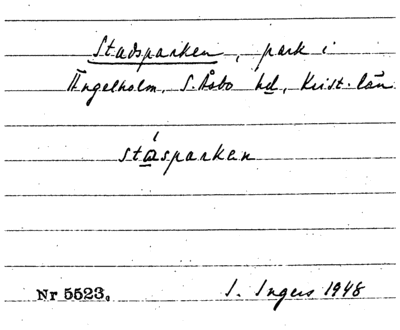 Stadsparken, park i
Ängelholm, S. Åsbo hd, Krist. län
stasparken
Nr 5523. I. Ingers 1948